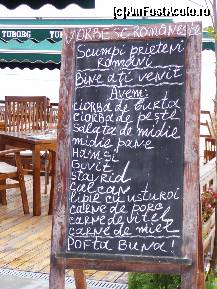 [c] AmFostAcolo.ro
TUBORG
VORBESC ROMÂNEȘTE
Scumpi prieteni
români
Bine ați venit
Avem:
ciorba de burta
ciorba de pește
Salata de midie
midie pane
Hamsi
Guvit
stavrid
Calcan
lipie cu usturoi
carne de porc
carne de vitel
carne de miel
POFTA BUNA!